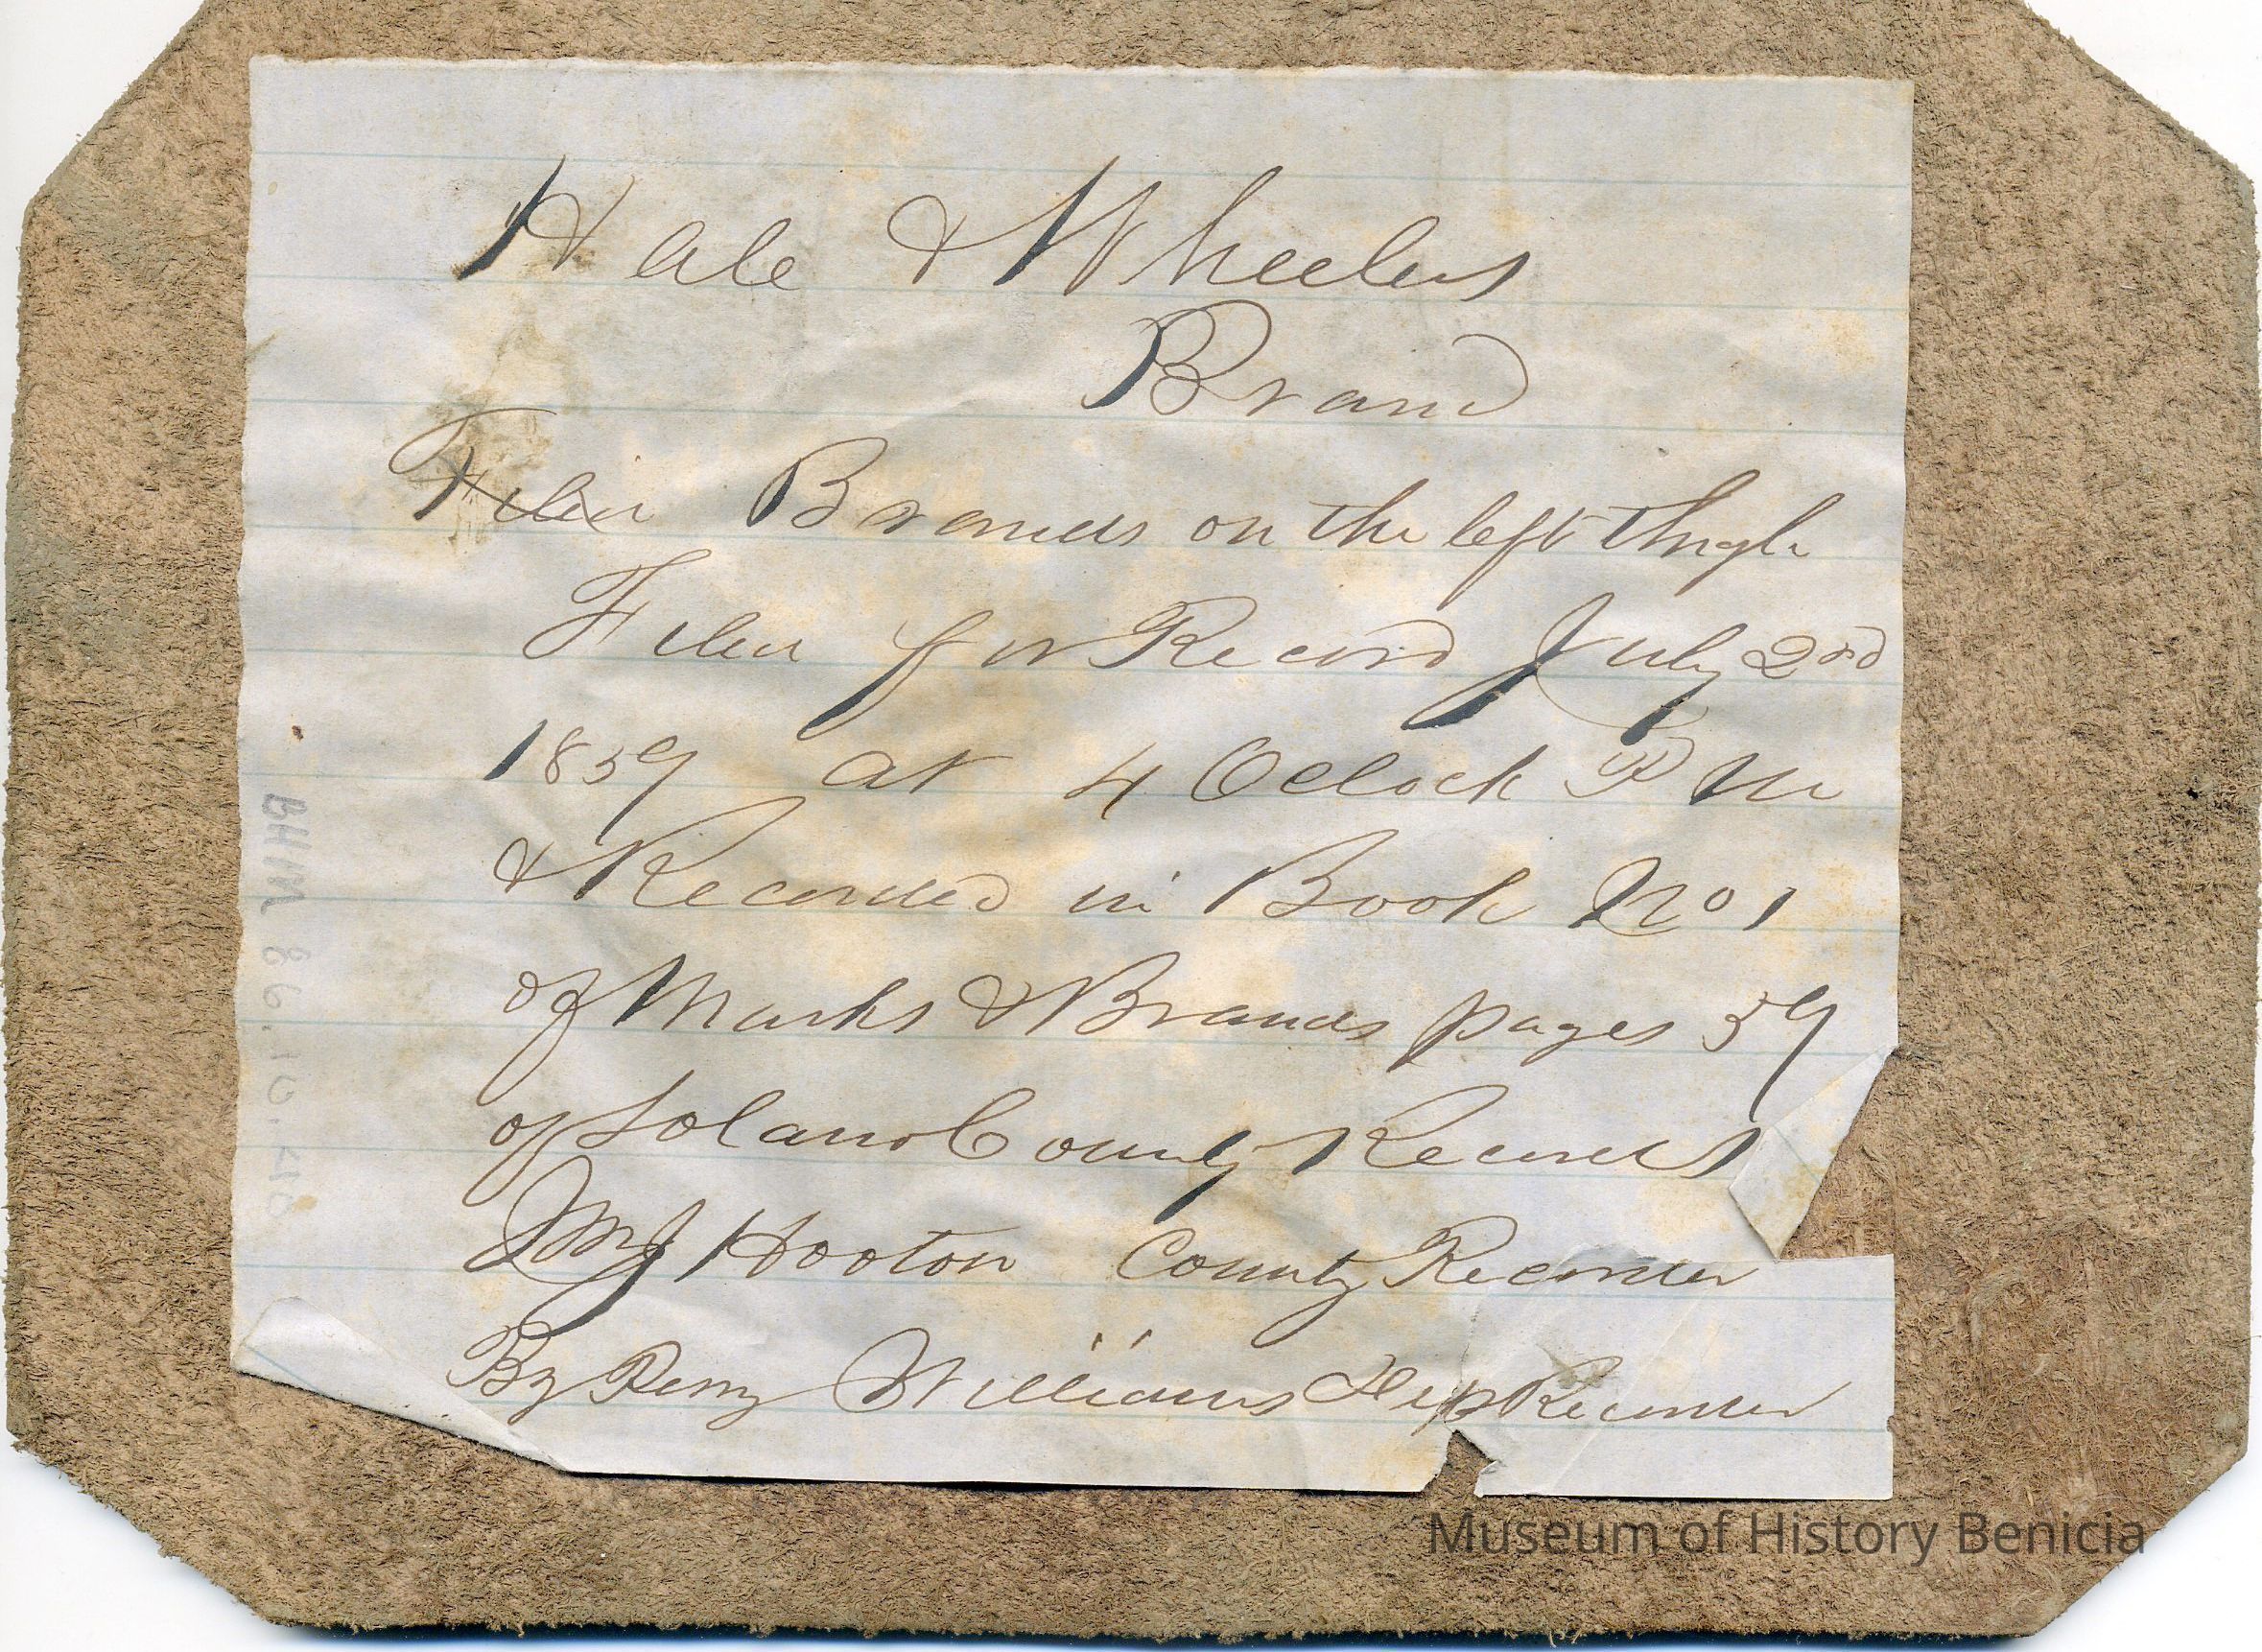 Hale & Wheelers
Brand
Filed Brands on the left thigh
Filed for Record July 2nd
1859 at 4 Oclock P M
& Recorded in Book No 1
of Marks & Brands pages 59
of Solano County Records
Wm J Hooton County Recorder
By Perry Williams Dep Recorder
BHM 86.10.40
Museum of History Benicia